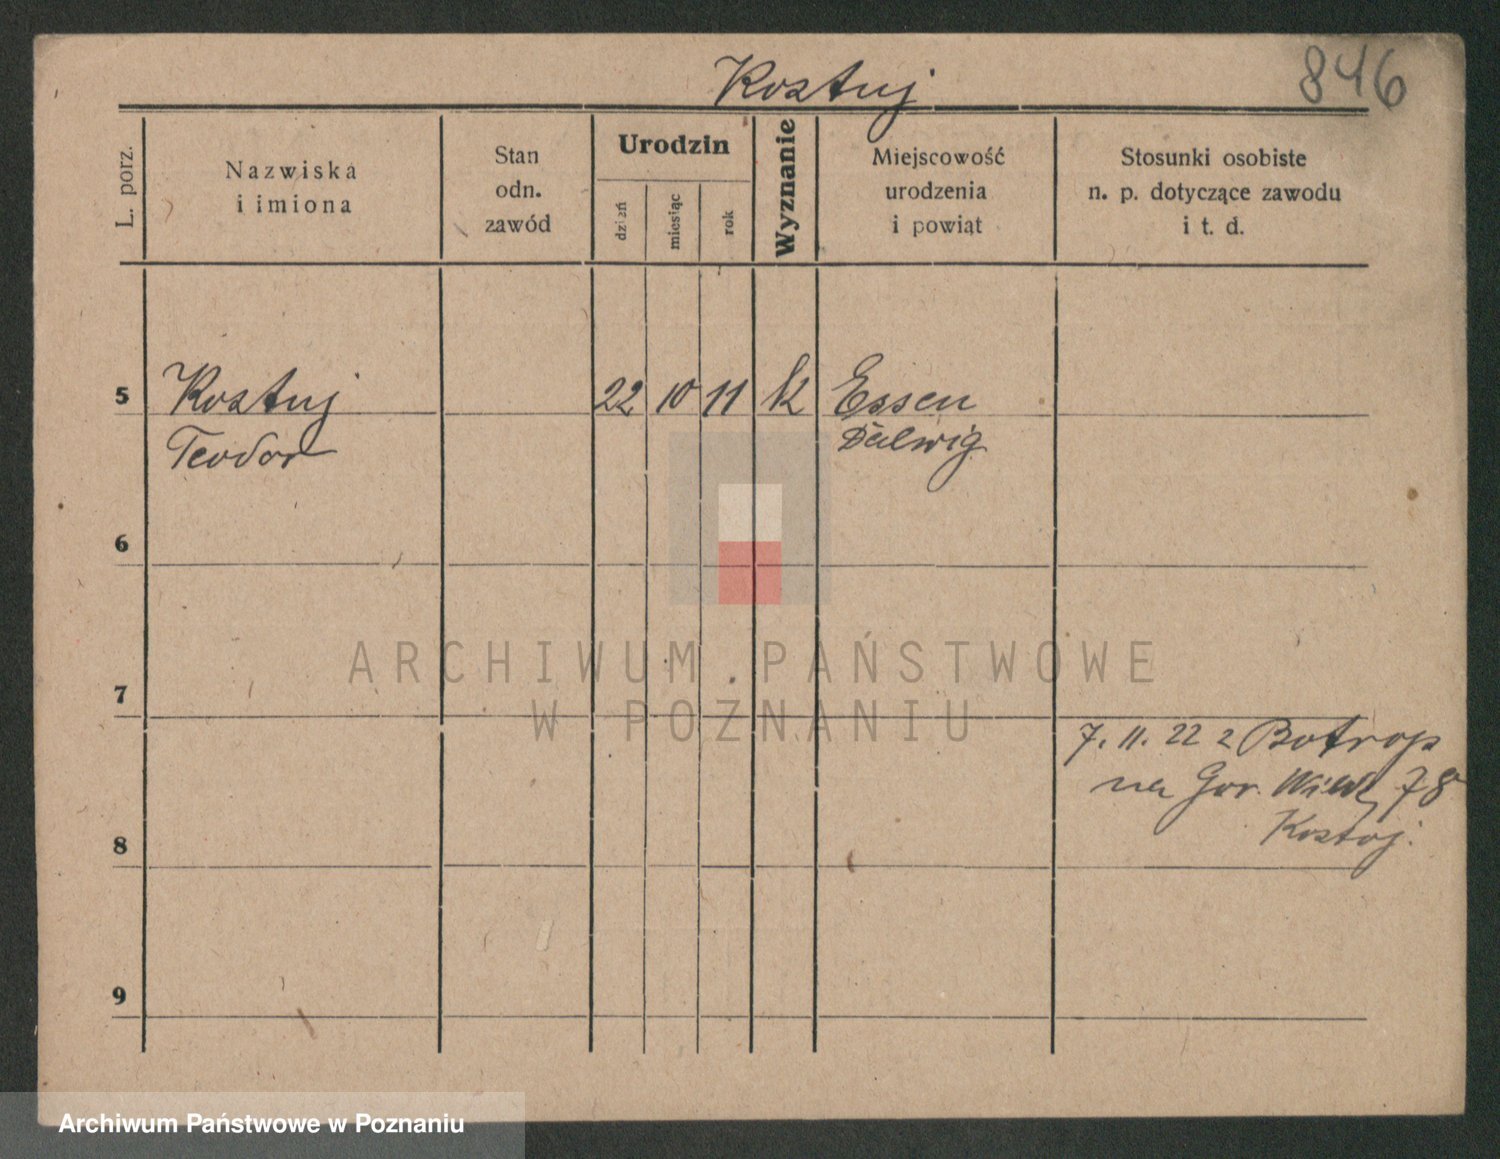 Kostuj
846
L. porz.
Nazwiska
i imiona
Stan
odn.
zawód
Urodzin
dzień
miesiąc
rok
Wyznanie
Miejscowość
urodzenia
i powiąt
Stosunki osobiste
n. p. dotyczące zawodu
i t. d.
5 Kostuj 22 10 11 k Essen
Teodor
6
7
7. 11. 22 z Botrop
na Gór. 78
Kostuj.
8
9
ARCHIWUM PAŃSTWOWE
W POZNANIU
Archiwum Państwowe w Poznaniu